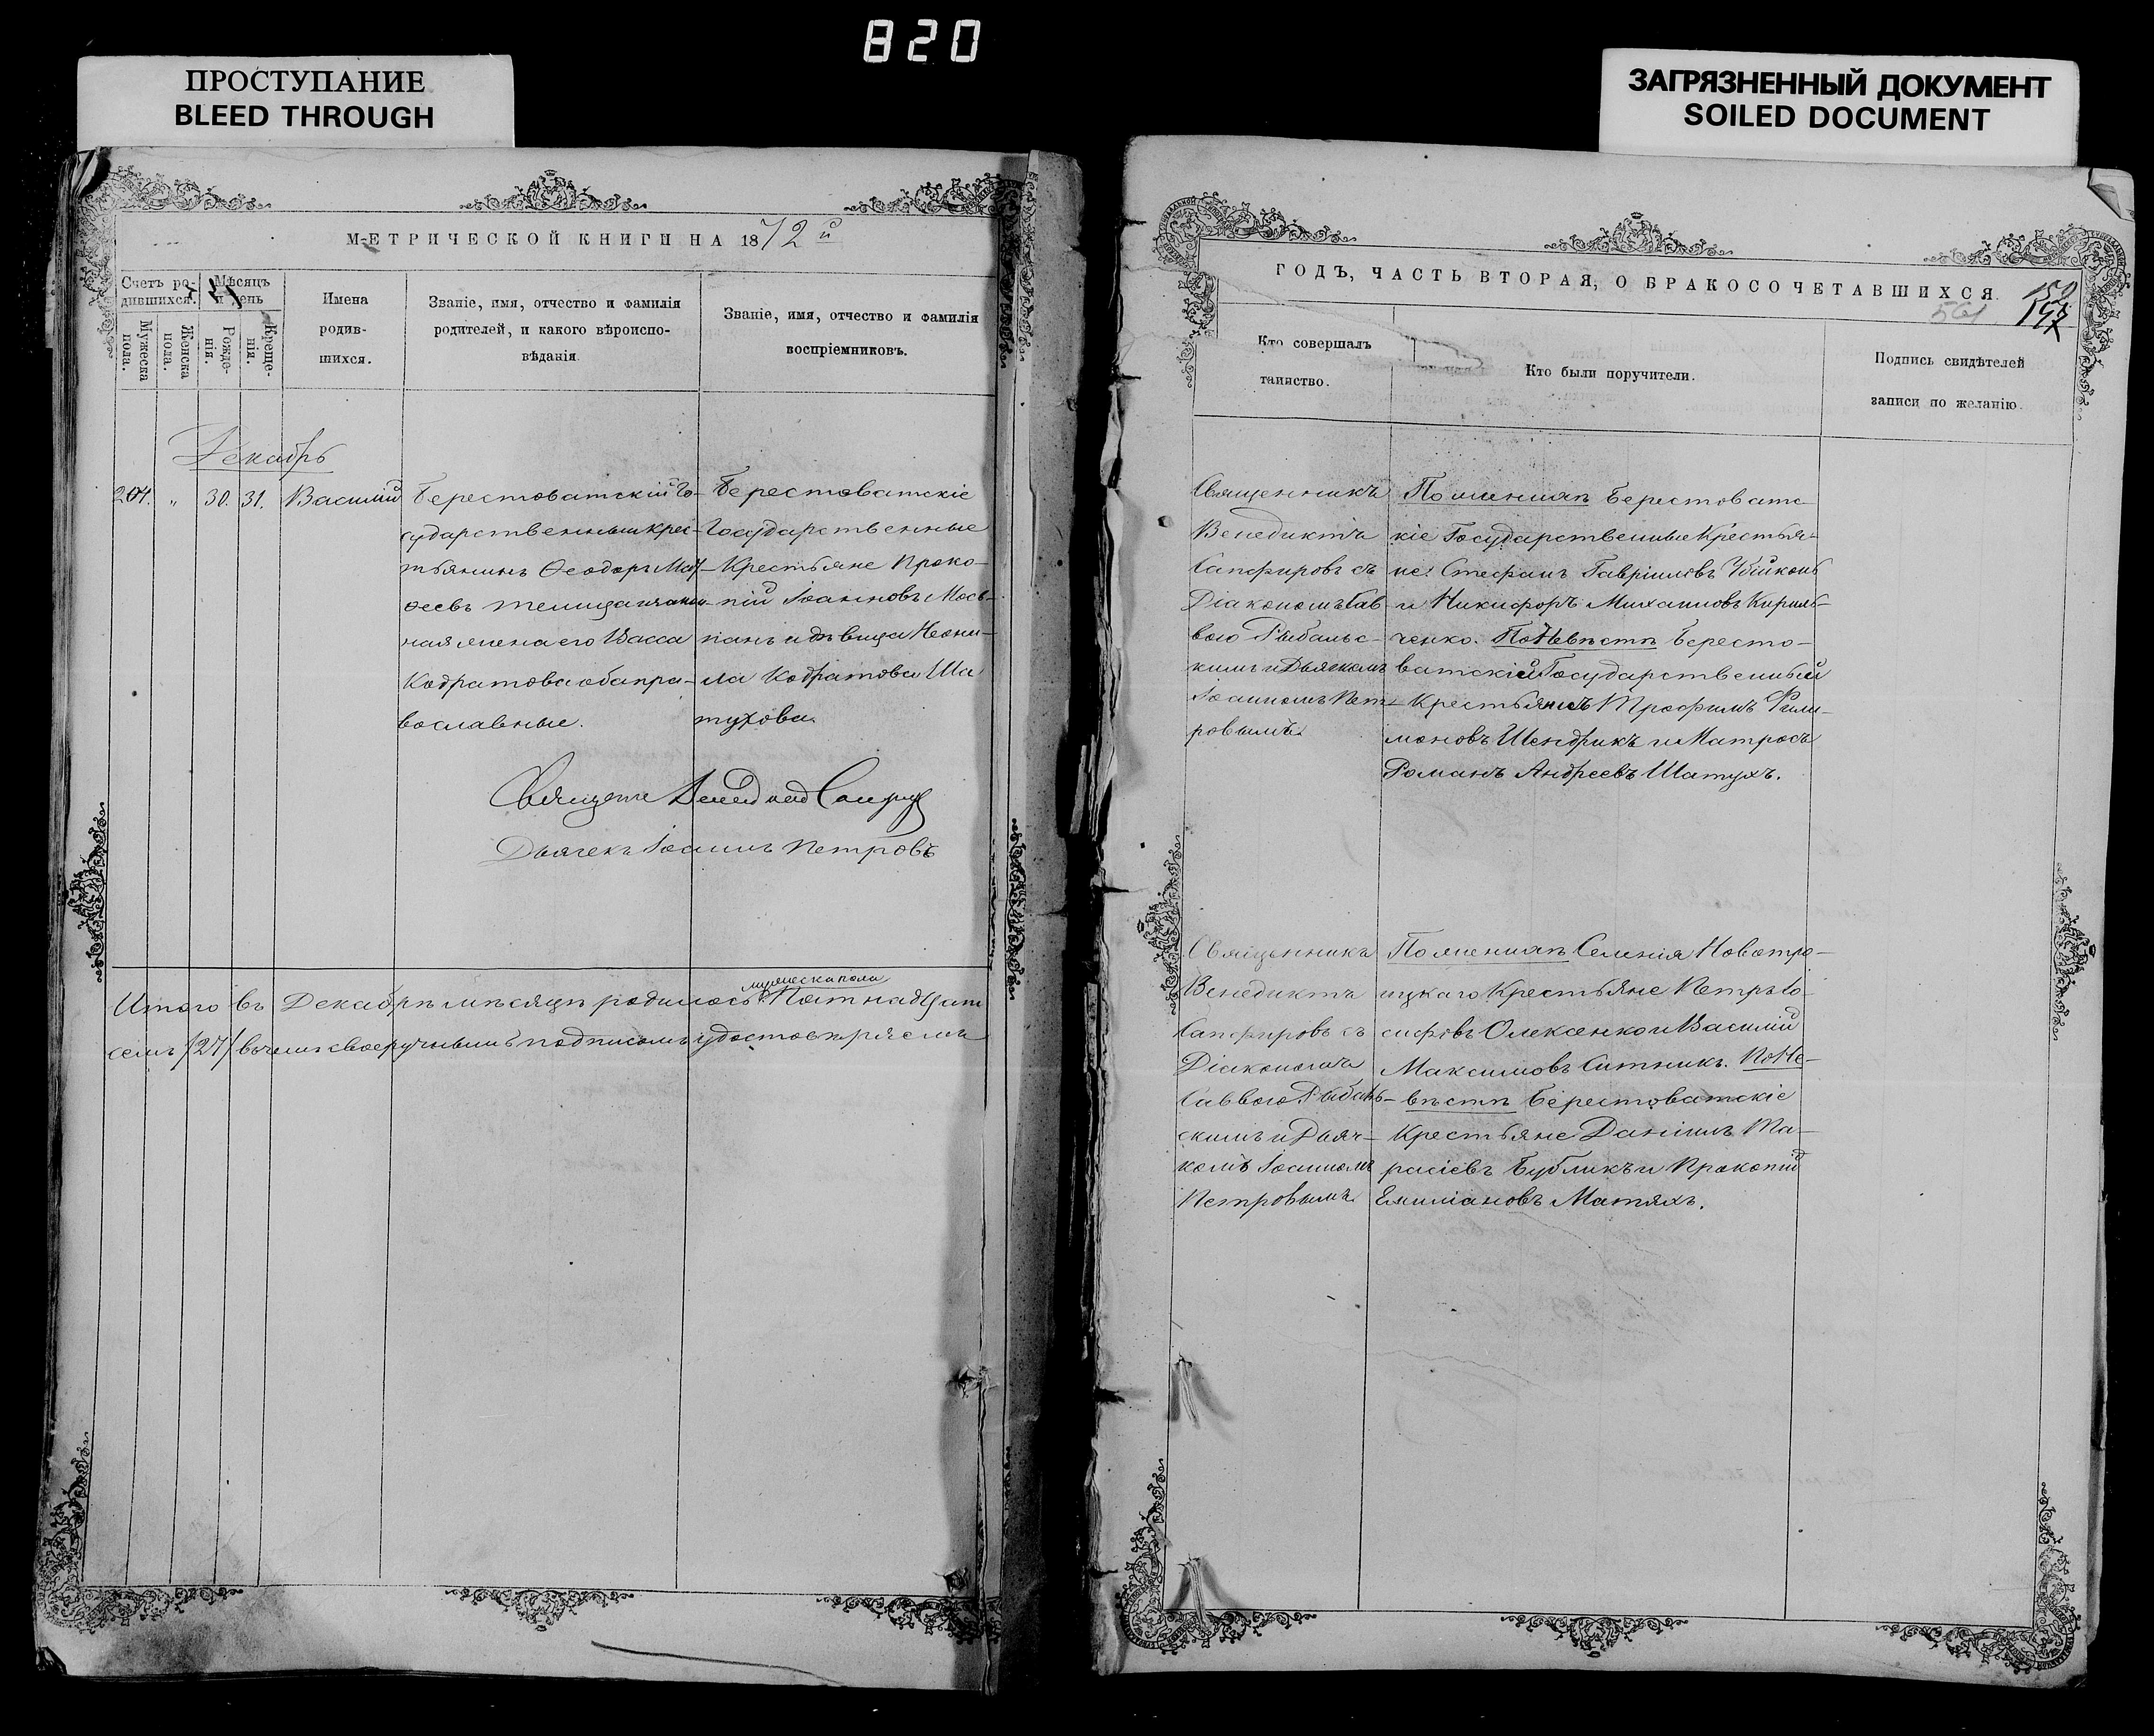 820
ПРОСТУПАНИЕ
BLEED THROUGH
ЗАГРЯЗНЕННЫЙ ДОКУМЕНТ
SOILED DOCUMENT
МЕТРИЧЕСКОЙ КНИГИ НА 1872й
Счетъ ро-
дившихся.
Мѣсяцъ
и день
Мужеска
пола.
Женска
пола.
Рожде-
нія.
Креще-
нія.
Имена
родив-
шихся.
Званіе, имя, отчество и фамилія
родителей, и какого вѣроиспо-
вѣданія.
Званіе, имя, отчество и фамилія
воспріемниковъ.
Декабрь
204. „ 30. 31. Василій
Берестоватскій Го-
сударственный крес-
тьянинъ Ѳеодоръ
ѳеевъ
ная жена его Васса
Кодратова оба пра-
вославные.
Берестоватскіе
Государственные
Крестьяне Проко-
пій Іоанновъ Мось-
панъ и дѣвица Неони-
ла Кодратова Ша
тухова
Священ
Дьячекъ Іоаннъ Петровъ
Итого въ Декабрѣ мѣсяцѣ родилось мужеска пола
семь /27/ въ чемъ своеручнымъ подписомъ удостовѣряемъ
ГОДЪ, ЧАСТЬ ВТОРАЯ, О БРАКОСОЧЕТАВШИХСЯ.
561
Кто совершалъ
таинство.
Кто были поручители.
Подпись свидѣтелей
записи по желанію.
Священникъ
Венедиктъ
Сапфировъ съ
Діакономъ Сав-
вою Рыбальс-
кимъ и Дьячкомъ
Іоанномъ Пет-
ровымъ.
По женихѣ Берестоватс-
кіе Государственные Крестья-
не: Стефанъ Гавріиловъ
и Никифоръ Михаиловъ Кирил-
ченко. По Невѣстѣ Бересто-
ватскій Государственный
Крестьянинъ Трофимъ Фили-
моновъ Шендрикъ и Матросъ
Романъ Андреевъ Шатухъ.
Священникъ
Венедиктъ
Сапфировъ съ
Діакономъ
Саввою Рыбаль-
скимъ и Дьяч-
комъ Іоанномъ
Петровымъ
По женихѣ Селенія Новотро-
ицкаго Крестьяне Петръ Іо-
сифовъ Олексенко и Василій
Максимовъ Ситникъ. По Не-
вѣстѣ Берестоватскіе
Крестьяне Даніилъ Та-
расіевъ Бубликъ и Прокопій
Емиліановъ Матяхъ.